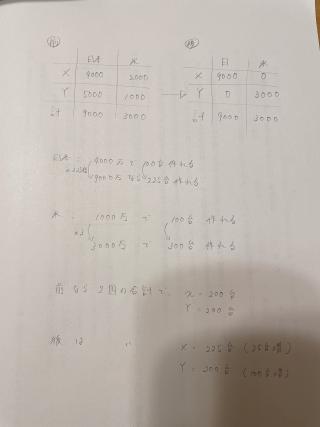 前 後
日本 米 日 米
X 4000 2000 X 9000 0
Y 5000 1000 → Y 0 3000
計 9000 3000 計 9000 3000
日本: 4000万で100台作れる
9000万なら225台作れる
米: 1000万で100台作れる
×3
3000万で300台作れる
前なら2国の合計で、 X = 200台
Y = 200台
後は 〃 X = 225台 (25台増)
Y = 300台 (100台増)